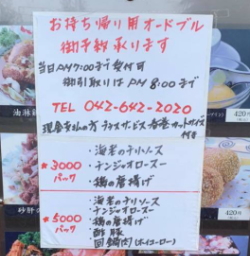 お持ち帰り用オードブル
御予約承ります
当日PM7:00まで受付可
御引取りはPM 8:00まで
TEL 042-642-2020
現金支払の方 ライスサービス
★3000
パック
・海老のチリソース
・チンジャオロースー
・鶏の唐揚げ
★5000
パック
・海老のチリソース
・チンジャオロースー
・鶏の唐揚げ
・酢豚
・回鍋肉(ホイコーロー)
油淋鶏
砂肝の
420円
420円